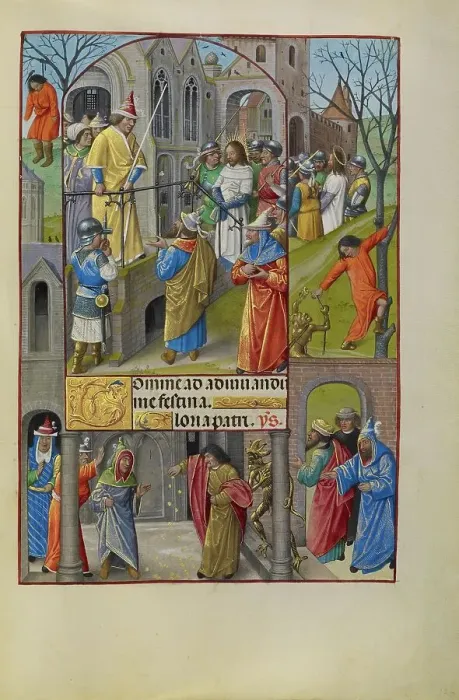 Domine ad adiuuandū
me festina.
Gloria patri. p̄s.